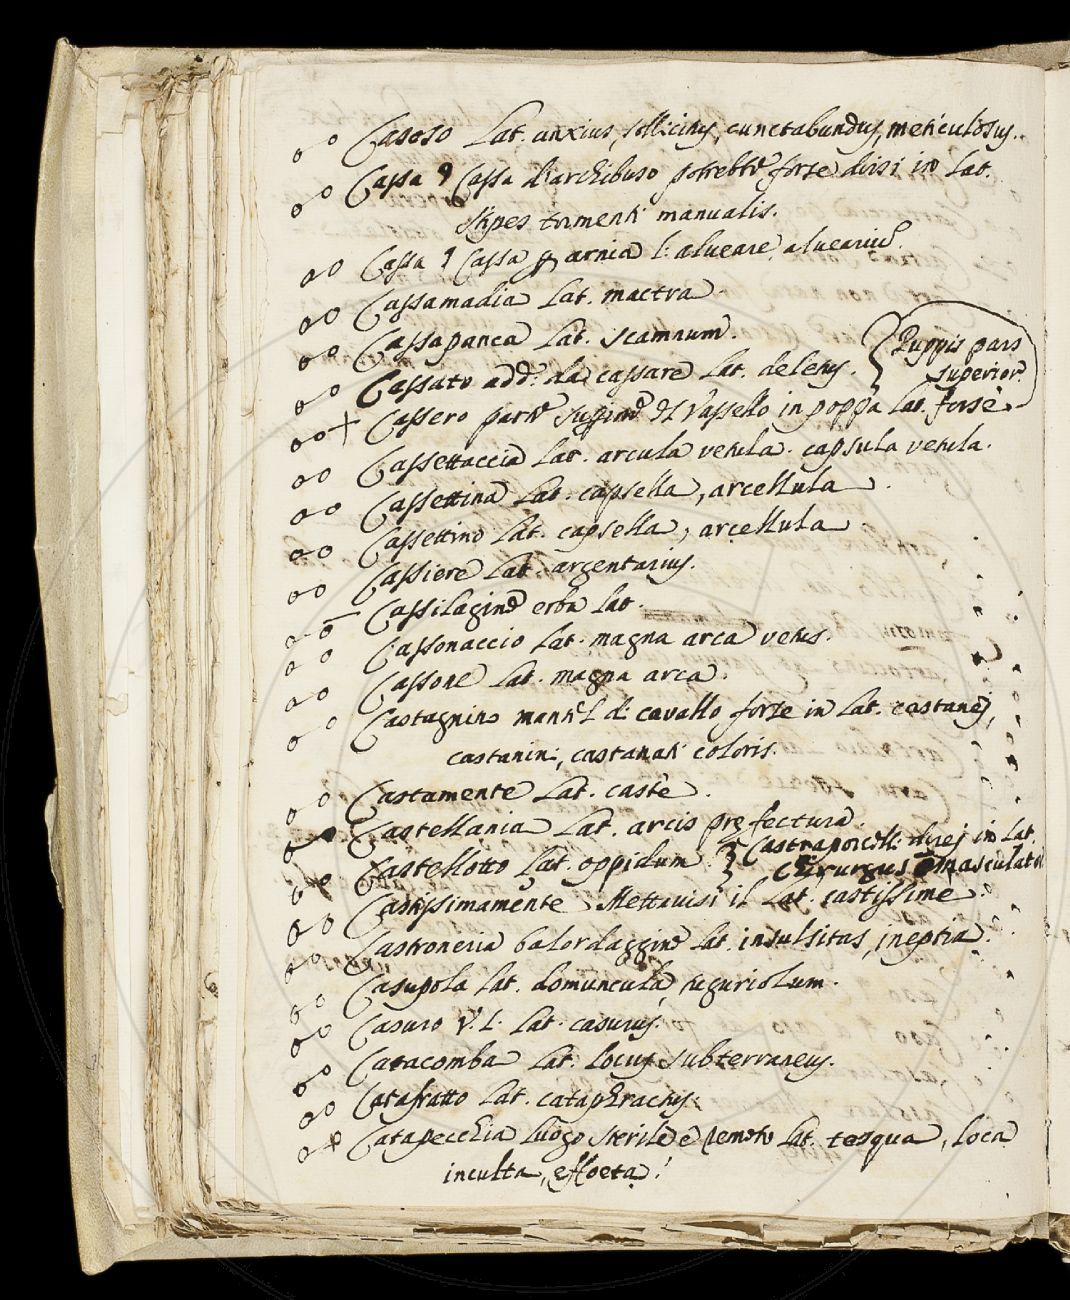 Casoso Lat. anxius, sollicitus, cunctabundus, meticulosus.
Cassa Cassa d'archibuso potrebbe forse dirsi in Lat.
stipes tormenti manualis.
Cassa Cassa p arnia l. alveare, alvearium.
Cassamadia Lat. mactra.
Cassapanca Lat. scamnum.
Cassato add: da cassare Lat. deletus.
Cassero parte del Vassello in poppa Lat. forse
Puppis pars
superior.
Cassettaccia Lat. arcula vetula. capsula vetula.
Cassettina Lat. capsella, arcellula.
Cassettino Lat. capsella, arcellula.
Cassiere Lat. argentarius.
Cassilagine erba Lat.
Cassonaccio Lat. magna arca vetus.
Cassone Lat. magna arca.
Castagnino di cavallo forse in Lat. castanei,
castanini, castanati coloris.
Castamente Lat. castè.
Castellania Lat. arcis præfectura.
Castellotto Lat. oppidum.
Castraporcelli in Lat.
Chirurgus
Castissimamente Mettavisi il Lat. castissime.
Castroneria balordaggine Lat. insulsitas, ineptia.
Casupola Lat. domuncula, tuguriolum.
Casuro V. L. Lat. casurus.
Catacomba Lat. locus subterraneus.
Catafratto Lat. cataphractus.
Catapecchia luogo sterile e remoto Lat. tesqua, loca
inculta, effoeta.